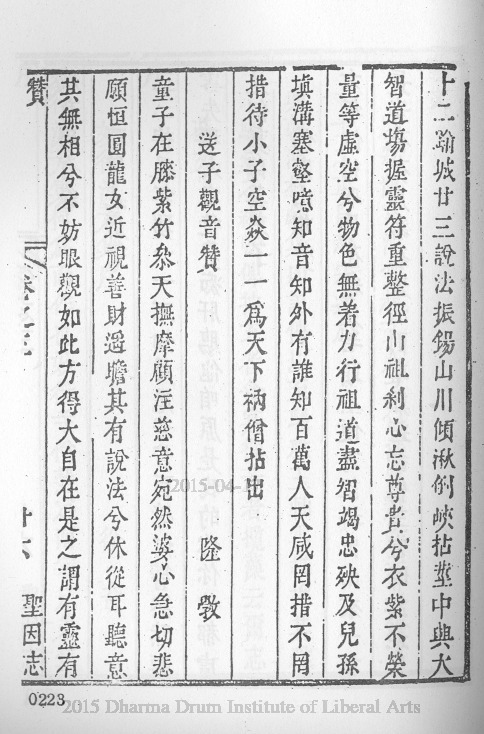 十二踰城廿三說法振錫山川傾湫倒峽拈莖中興大
智道塲握靈符重整徑山祖刹心忘尊貴兮衣紫不榮
量等虛空兮物色無着力行祖道盡智竭忠殃及兒孫
塡溝塞壑噫知音知外有誰知百萬人天咸罔措不罔
措待小子空焱一一爲天下衲僧拈出
送子觀音贊 隆斅
童子在膝紫竹叅天撫摩顧注慈意宛然婆心急切悲
願恒圓龍女近視善財遥瞻其有說法兮休從耳聽意
其無相兮不妨眼觀如此方得大自在是之謂有靈有
贊
卷之三 十六 聖因志
0223
2015-04-1
2015 Dharma Drum Institute of Liberal Arts